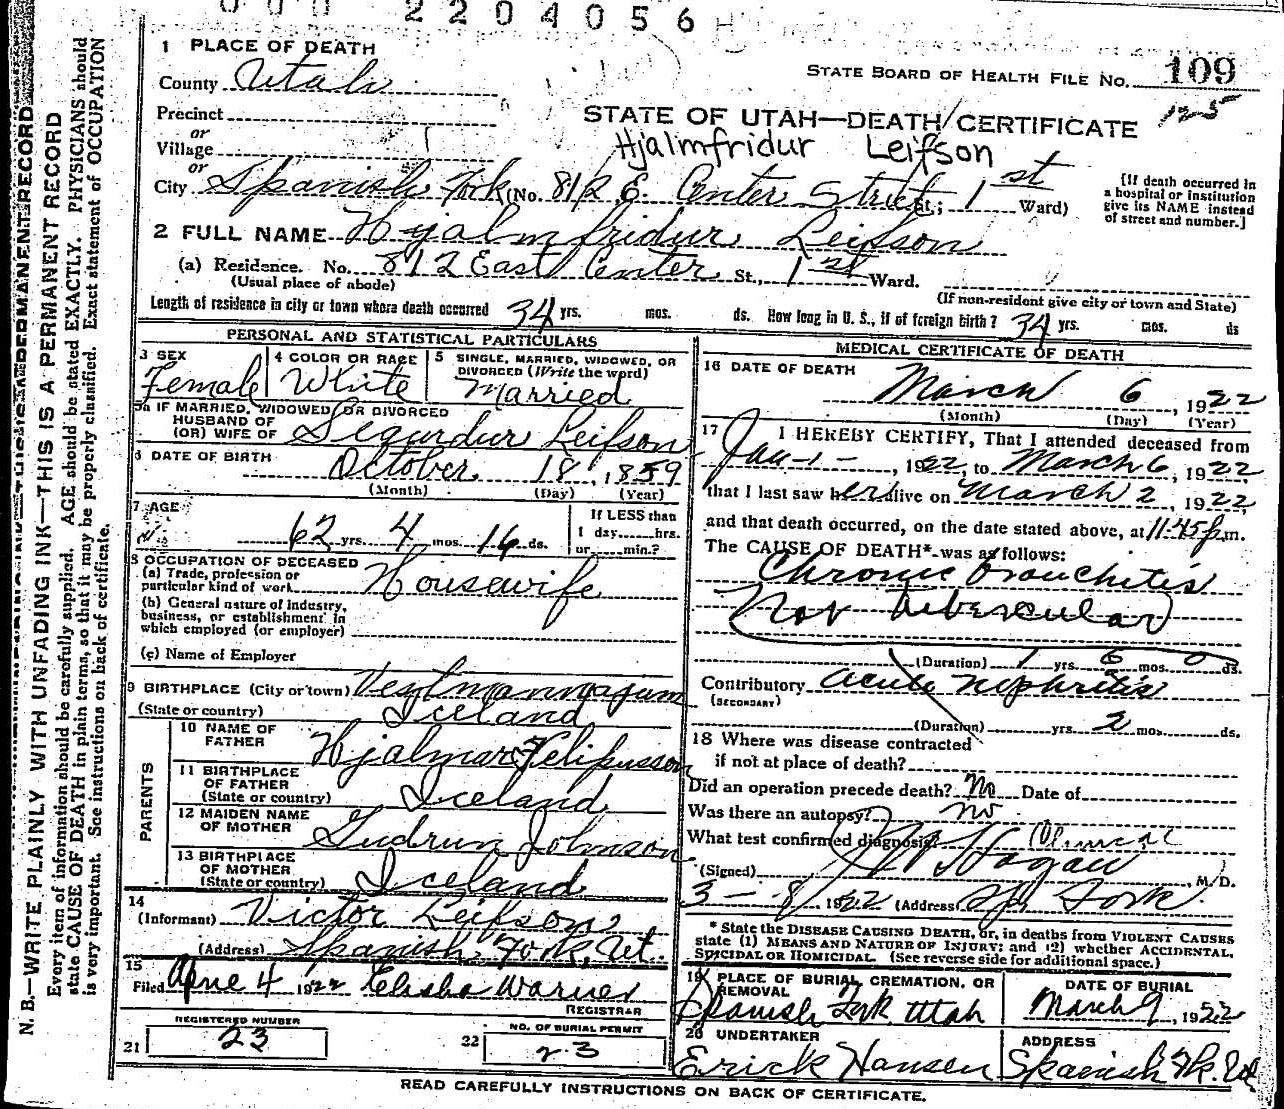 0 0 0 2 2 0 4 0 5 6 H
1 PLACE OF DEATH
County Utah
STATE BOARD OF HEALTH FILE No. 109
125
Precinct
or
Village
or
STATE OF UTAH—DEATH CERTIFICATE
Hjalmfridur Leifson
City Spanish Fork (No. 812 E. Center Street St.; 1st Ward)
[If death occurred in a hospital or institution give its NAME instead of street and number.]
2 FULL NAME Hjalmfridur Leifson
(a) Residence. No. 812 East Center St., 1st Ward.
(Usual place of abode)
(If non-resident give city or town and State)
Length of residence in city or town where death occurred 34 yrs. mos. ds. How long in U. S., if of foreign birth? 34 yrs. mos. ds
PERSONAL AND STATISTICAL PARTICULARS
3 SEX Female
4 COLOR OR RACE White
5 SINGLE, MARRIED, WIDOWED, OR DIVORCED (Write the word) Married
5a IF MARRIED, WIDOWED, OR DIVORCED
HUSBAND OF
(OR) WIFE OF Segurdur Leifson
6 DATE OF BIRTH October 18, 1859
(Month) (Day) (Year)
7 AGE
62 yrs. 4 mos. 16 ds.
If LESS than
1 day......hrs.
or......min.?
8 OCCUPATION OF DECEASED
(a) Trade, profession or
particular kind of work Housewife
(b) General nature of industry,
business, or establishment in
which employed (or employer)
(c) Name of Employer
9 BIRTHPLACE (City or town)
(State or country) Iceland
PARENTS
10 NAME OF
FATHER Hjalmar Felipusson
11 BIRTHPLACE
OF FATHER
(State or country) Iceland
12 MAIDEN NAME
OF MOTHER Gudrun Johnson
13 BIRTHPLACE
OF MOTHER
(State or country) Iceland
14
(Informant) Victor Leifson
(Address) Spanish Fork, Ut.
15
Filed June 4 1922 Elisha Warner
REGISTRAR
21 REGISTERED NUMBER 23
22 NO. OF BURIAL PERMIT 23
MEDICAL CERTIFICATE OF DEATH
16 DATE OF DEATH
March 6, 1922
(Month) (Day) (Year)
17 I HEREBY CERTIFY, That I attended deceased from
Jan - 1 -, 1922, to March 6, 1922
that I last saw her alive on March 2, 1922,
and that death occurred, on the date stated above, at 11:45 p m.
The CAUSE OF DEATH* was as follows:
Chronic Bronchitis
Not Tubercular
(Duration) 1 yrs. 6 mos. 0 ds.
Contributory Acute Nephritis
(SECONDARY)
(Duration) yrs. 2 mos. ds.
18 Where was disease contracted
if not at place of death?
Did an operation precede death? No Date of
Was there an autopsy? no
What test confirmed diagnosis? Clinical
(Signed) Hagan, M. D.
3 - 8, 1922 (Address) Sp. Fork
* State the DISEASE CAUSING DEATH, or, in deaths from VIOLENT CAUSES
state (1) MEANS AND NATURE OF INJURY; and (2) whether ACCIDENTAL,
SUICIDAL OR HOMICIDAL. (See reverse side for additional space.)
19 PLACE OF BURIAL, CREMATION, OR
REMOVAL
Spanish Frk. Utah
DATE OF BURIAL
March 9, 1922
20 UNDERTAKER
Erick Hansen
ADDRESS
Spanish Frk. Ut
READ CAREFULLY INSTRUCTIONS ON BACK OF CERTIFICATE.
N. B.—WRITE PLAINLY WITH UNFADING INK—THIS IS A PERMANENT RECORD
Every item of information should be carefully supplied. AGE should be stated EXACTLY. PHYSICIANS should
state CAUSE OF DEATH in plain terms, so that it may be properly classified. Exact statement of OCCUPATION
is very important. See instructions on back of certificate.